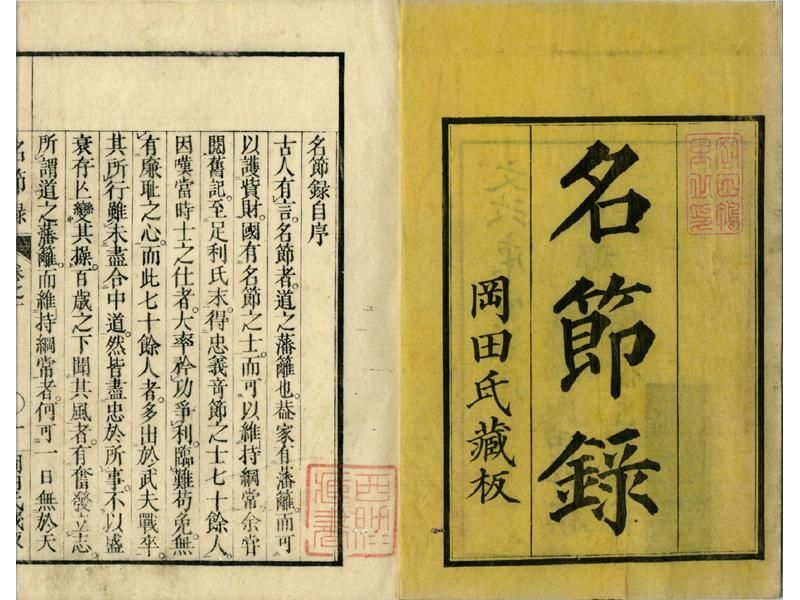 名節錄
岡田氏藏板
名節錄自序
古人有言。名節者。道之藩籬也。葢家有藩籬。而可
以護貲財。國有名節之士。而可以維持綱常。余甞
閱舊記。至足利氏末。得忠義奇節之士七十餘人。
因嘆當時士之仕者。大率矜功爭利。臨難苟免。無
有廉耻之心。而此七十餘人者。多出於武夫戰卒。
其所行雖未盡合中道。然皆盡忠於所事。不以盛
衰存亾變其操。百歲之下聞其風者。有奮發立志。
所謂道之藩籬。而維持綱常者。何可一日無於天
名節錄 卷之一 岡田氏藏板